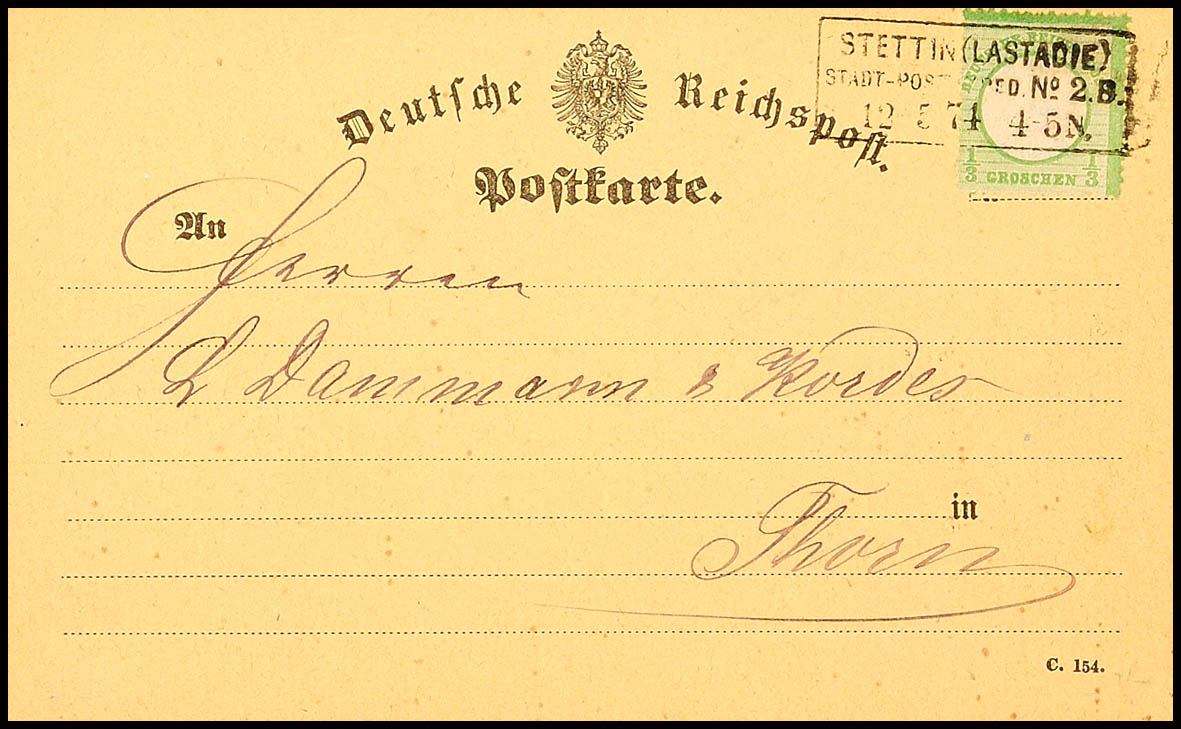 Deutsche Reichspost.
STETTIN (LASTADIE)
STADT-POST PED. No 2.B.
12 5 74 4-5N.
1/3 GROSCHEN 1/3
Postkarte.
An
Herren
L Dammann & Kordes
in
Thorn
C. 154.